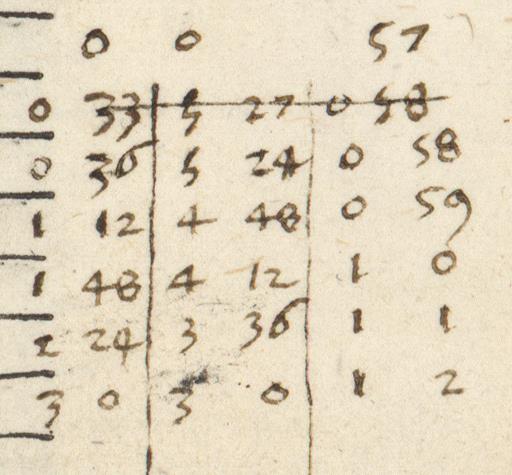 0 0 57
0 33 5 27 0 58
0 36 5 24 0 58
1 12 4 48 0 59
1 48 4 12 1 0
2 24 3 36 1 1
3 0 3 0 1 2